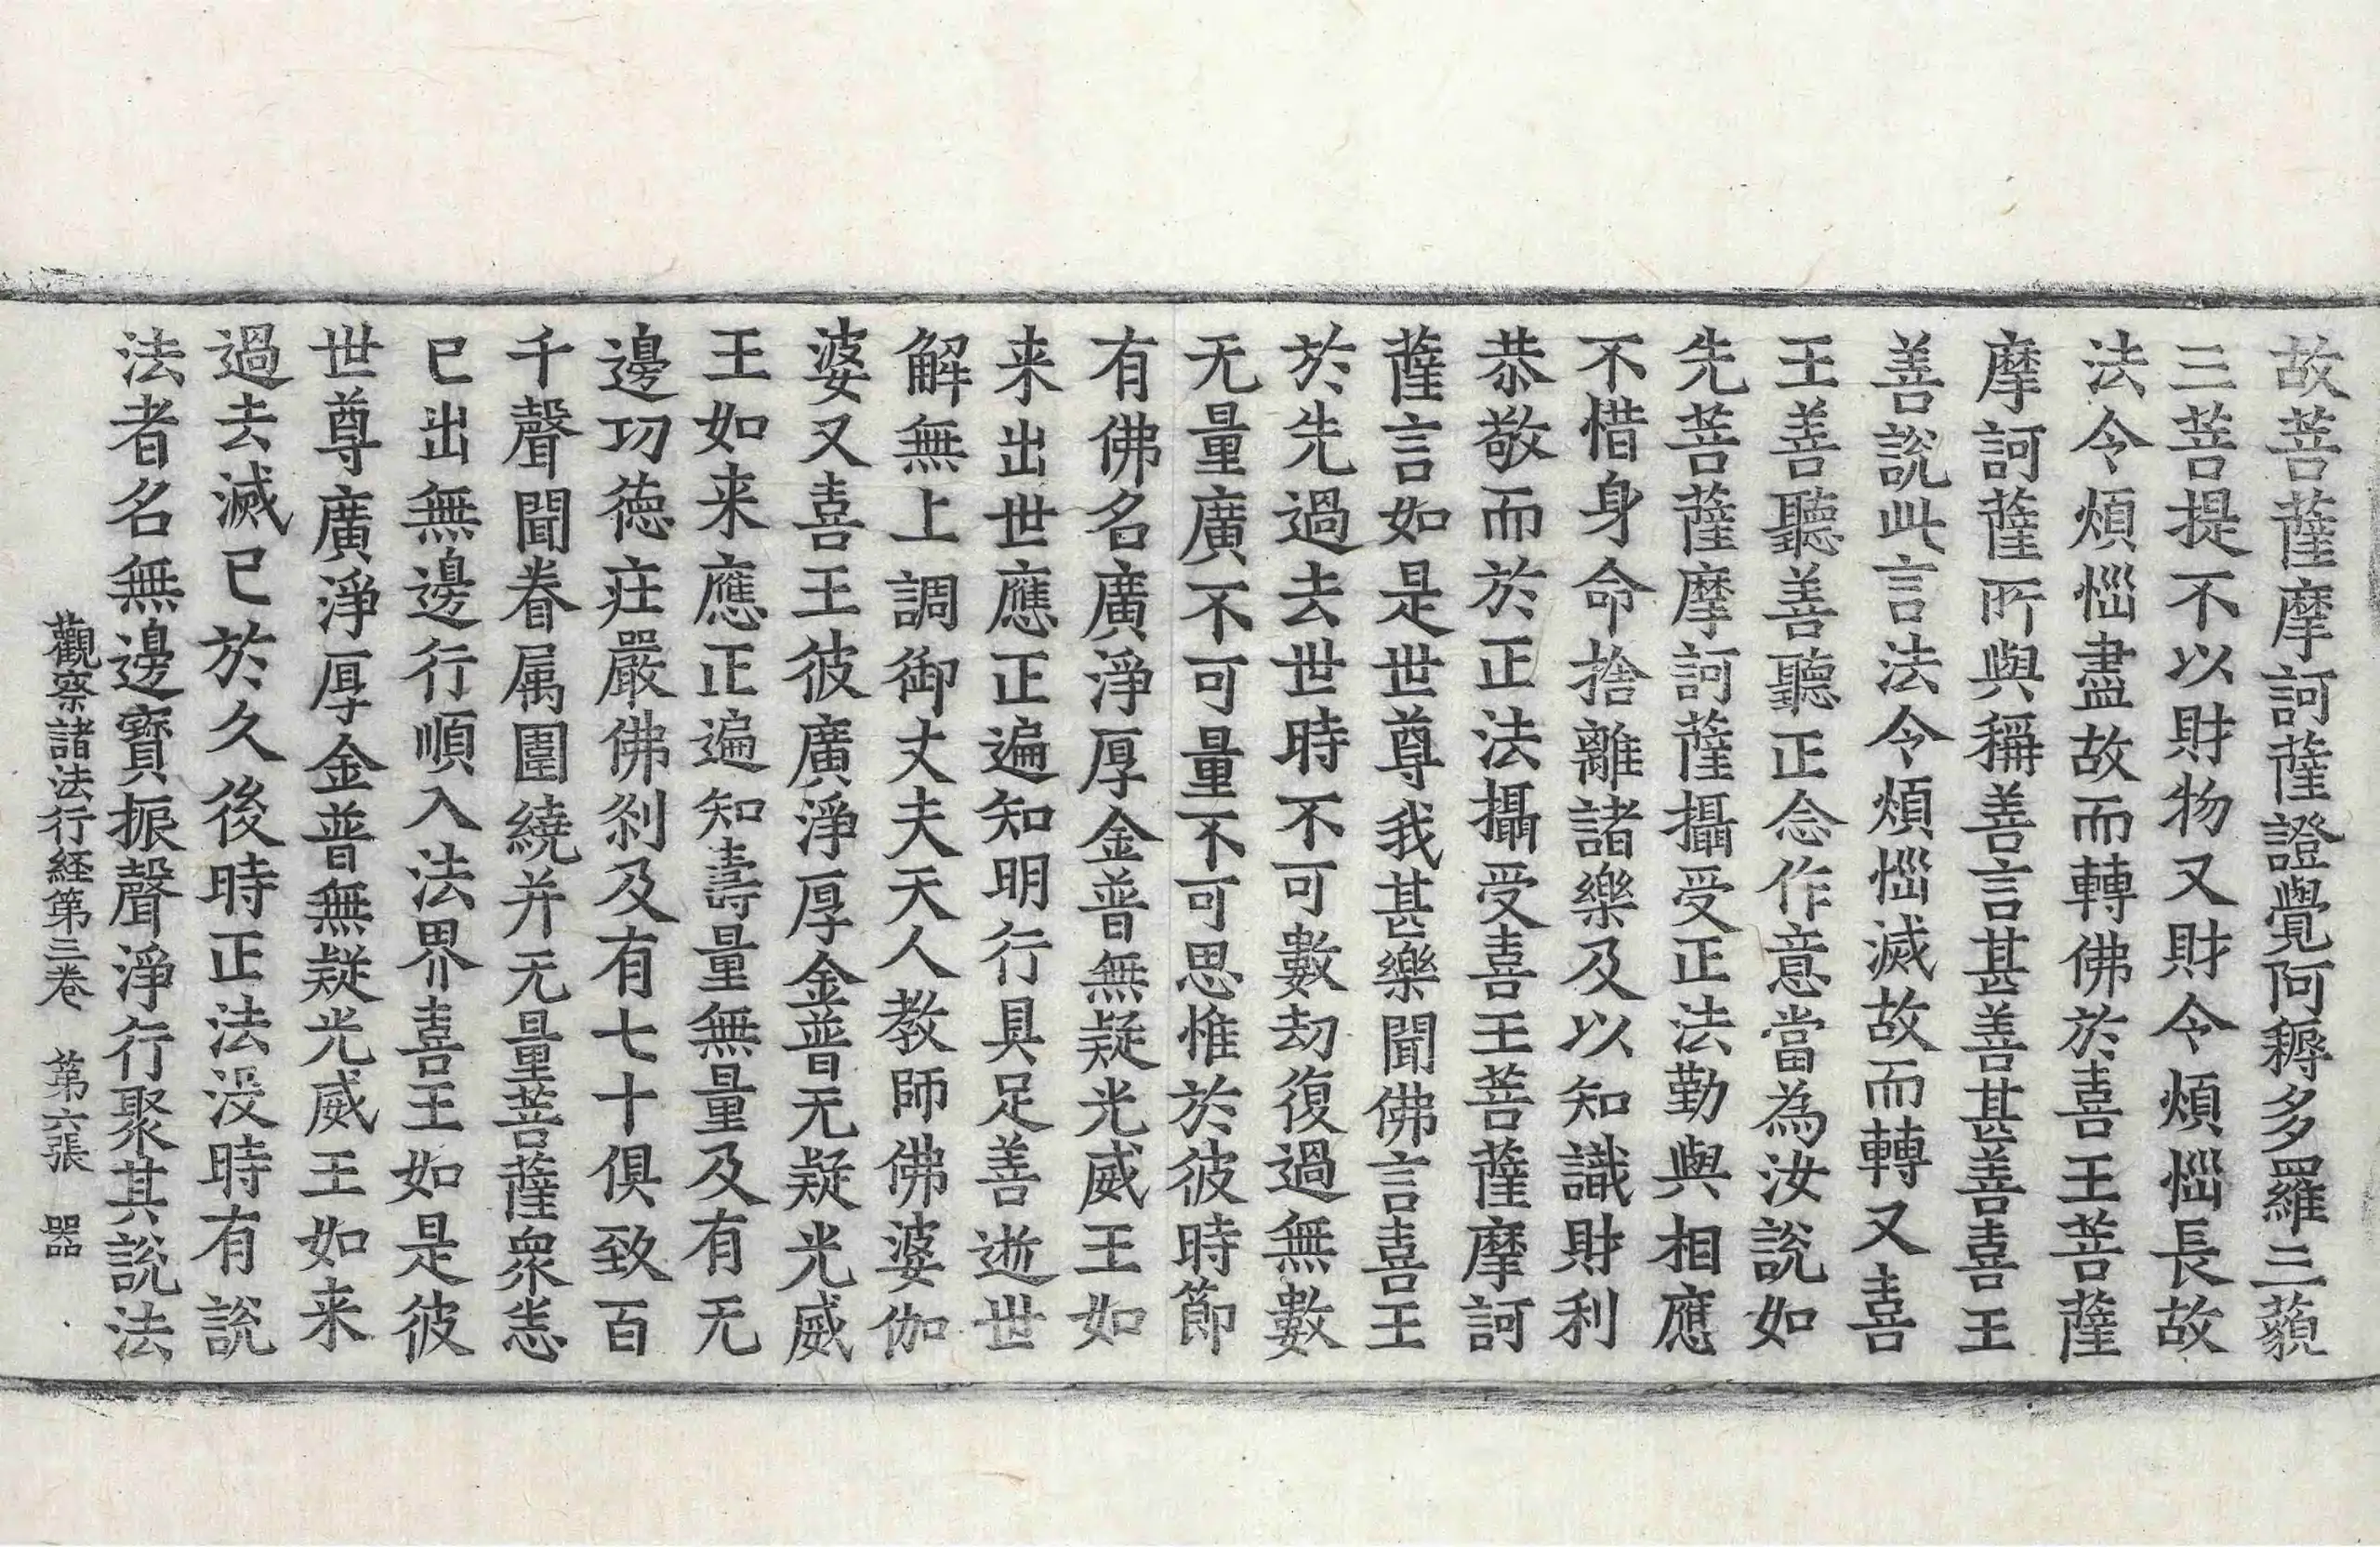 故菩薩摩訶薩證覺阿耨多羅三藐
三菩提不以財物又財令煩惱長故
法令煩惱盡故而轉佛於喜王菩薩
摩訶薩所與稱善言甚善甚善喜王
善說此言法令煩惱滅故而轉又喜
王善聽善聽正念作意當為汝說如
先菩薩摩訶薩攝受正法勤與相應
不惜身命捨離諸樂及以知識財利
恭敬而於正法攝受喜王菩薩摩訶
薩言如是世尊我甚樂聞佛言喜王
於先過去世時不可數劫復過無數
无量廣不可量不可思惟於彼時節
有佛名廣淨厚金普無疑光威王如
来出世應正遍知明行具足善逝世
解無上調御丈夫天人教師佛婆伽
婆又喜王彼廣淨厚金普无疑光威
王如来應正遍知壽量無量及有无
邊功德莊嚴佛刹及有七十俱致百
千聲聞眷属圍繞并无量菩薩眾恙
已出無邊行順入法界喜王如是彼
世尊廣淨厚金普無疑光威王如来
過去滅已於久後時正法没時有說
法者名無邊寶振聲淨行聚其說法
觀察諸法行経第三卷 第六張 器